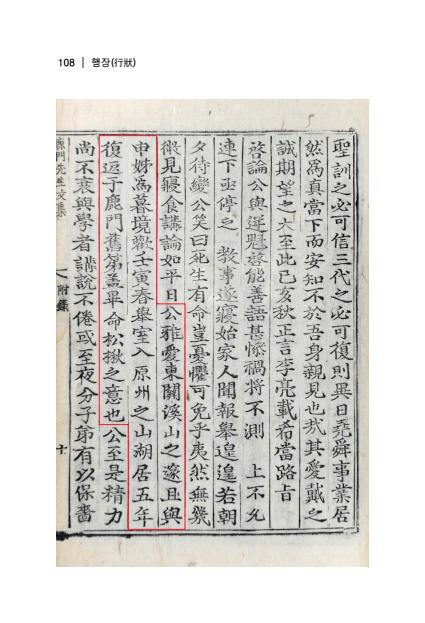 108 | 행장(行狀)
聖訓之必可信三代之必可復則異日堯舜事業居
然爲真當下而安知不於吾身親見也哉其愛戴之
誠期望之大至此己亥秋正言李亮載希當路旨
啓論公與逆魁啓能善語甚慘禍將不測 上不允
連下亟停之 教事遂寢始家人聞報擧遑遑若朝
夕待變公笑曰死生有命豈憂懼可免乎夷然無幾
微見寢食講論如平日公雅愛東關溪山之邃且與
申姊爲暮境歡壬寅春擧室入原州之山湖居五年
復返于鹿門舊第盖畢命松楸之意也公至是精力
尚不衰與學者講說不倦或至夜分子弟有以保嗇
鹿門先生文集 附錄 十